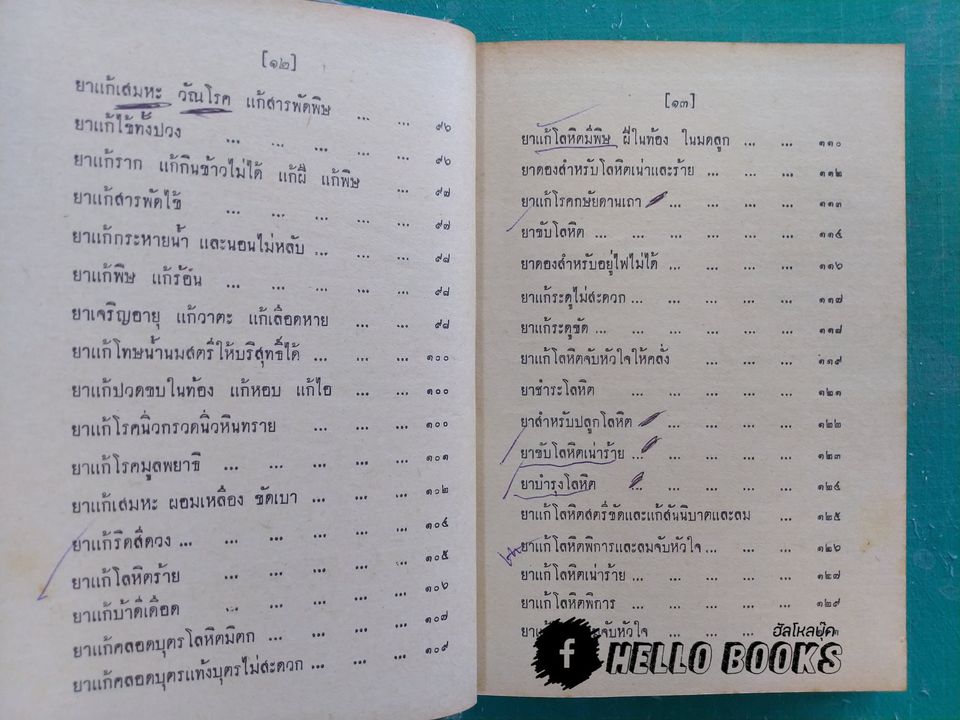 [๑๒]
ยาแก้เสมหะ วัณโรค แก้สารพัดพิษ ... ... ๙๖
ยาแก้ไข้ทั้งปวง ... ... ... ... ... ๙๖
ยาแก้ราก แก้กินข้าวไม่ได้ แก้ฝี แก้พิษ ... ๙๗
ยาแก้สารพัดไข้ ... ... ... ... ... ๙๗
ยาแก้กระหายน้ำ และนอนไม่หลับ ... ... ... ๙๘
ยาแก้พิษ แก้ร้อน ... ... ... ... ... ๙๘
ยาเจริญอายุ แก้วาตะ แก้เลือดหาย ... ... ๙๘
ยาแก้โทษน้ำนมสตรีให้บริสุทธิ์ได้ ... ... ... ๑๐๐
ยาแก้ปวดขบในท้อง แก้หอบ แก้ไอ ... ... ๑๐๐
ยาแก้โรคนิ่วกรวดนิ่วหินทราย ... ... ... ๑๐๐
ยาแก้โรคมูลพยาธิ ... ... ... ... ... ๑๐๑
ยาแก้เสมหะ ผอมเหลือง ขัดเบา ... ... ... ๑๐๒
ยาแก้ริดสีดวง ... ... ... ... ... ... ๑๐๔
ยาแก้โลหิตร้าย ... ... ... ... ... ๑๐๕
ยาแก้บ้าดีเดือด ... ... ... ... ... ๑๐๖
ยาแก้คลอดบุตรโลหิตมิตก ... ... ... ... ๑๐๗
ยาแก้คลอดบุตรแท้งบุตรไม่สะดวก ... ... ... ๑๐๙
[๑๓]
ยาแก้โลหิตมีพิษ ฝีในท้อง ในมดลูก ... ... ๑๑๐
ยาดองสำหรับโลหิตเน่าและร้าย ... ... ... ๑๑๒
ยาแก้โรคกษัยดานเถา ... ... ... ... ๑๑๓
ยาขับโลหิต ... ... ... ... ... ... ๑๑๔
ยาดองสำหรับอยู่ไฟไม่ได้ ... ... ... ... ๑๑๖
ยาแก้ระดูไม่สะดวก ... ... ... ... ... ๑๑๗
ยาแก้ระดูขัด ... ... ... ... ... ... ๑๑๘
ยาแก้โลหิตจับหัวใจให้คลั่ง ... ... ... ๑๑๙
ยาชำระโลหิต ... ... ... ... ... ๑๒๑
ยาสำหรับปลูกโลหิต ... ... ... ... ๑๒๒
ยาขับโลหิตเน่าร้าย ... ... ... ... ... ๑๒๓
ยาบำรุงโลหิต ... ... ... ... ... ๑๒๔
ยาแก้โลหิตสตรีขัดและแก้สันนิบาตและลม ... ๑๒๕
ยาแก้โลหิตพิการและลมจับหัวใจ ... ... ... ๑๒๖
ยาแก้โลหิตเน่าร้าย ... ... ... ... ... ๑๒๗
ยาแก้โลหิตพิการ ... ... ... ... ... ๑๒๙
จับหัวใจ ... ...
ฮัลโหลบุ๊ค
f HELLO BOOKS